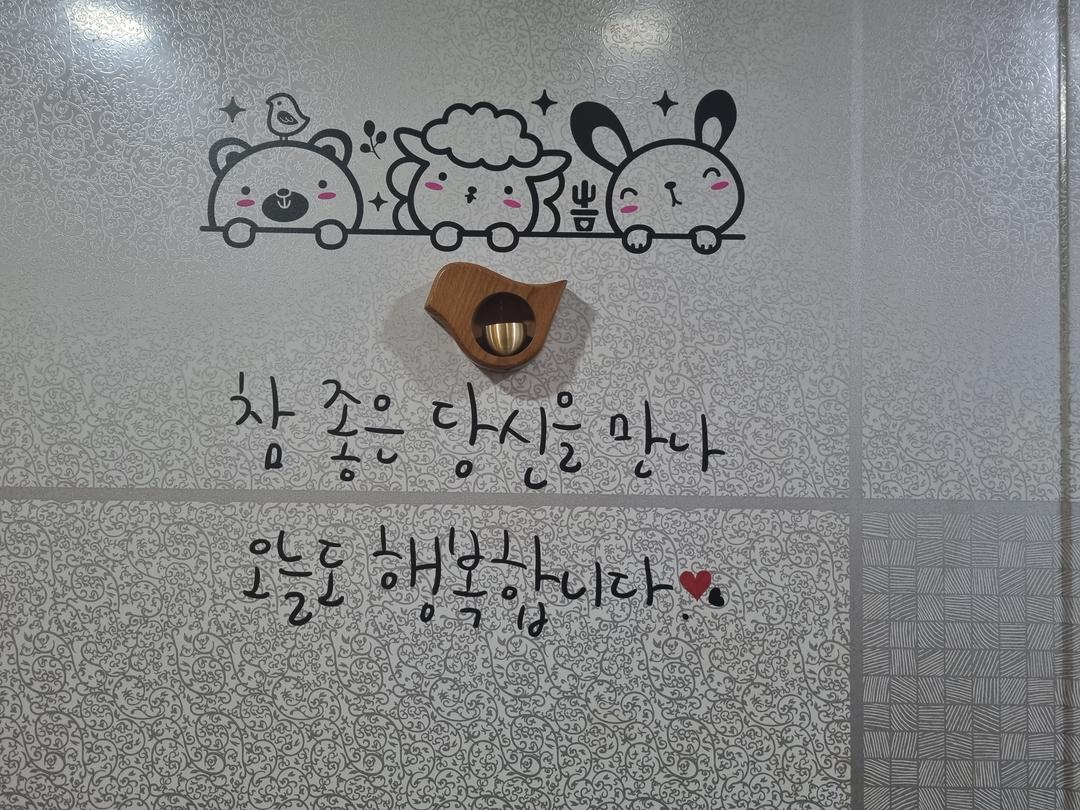 참 좋은 당신을 만나
오늘도 행복합니다